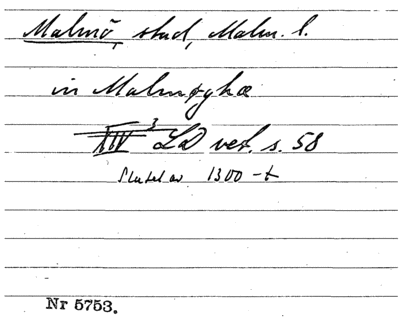 Malmö, stad, Malm. l.
in Malmøghæ
XIV 3 LD vet. s. 58
Slutet av 1300-t
Nr 5753.